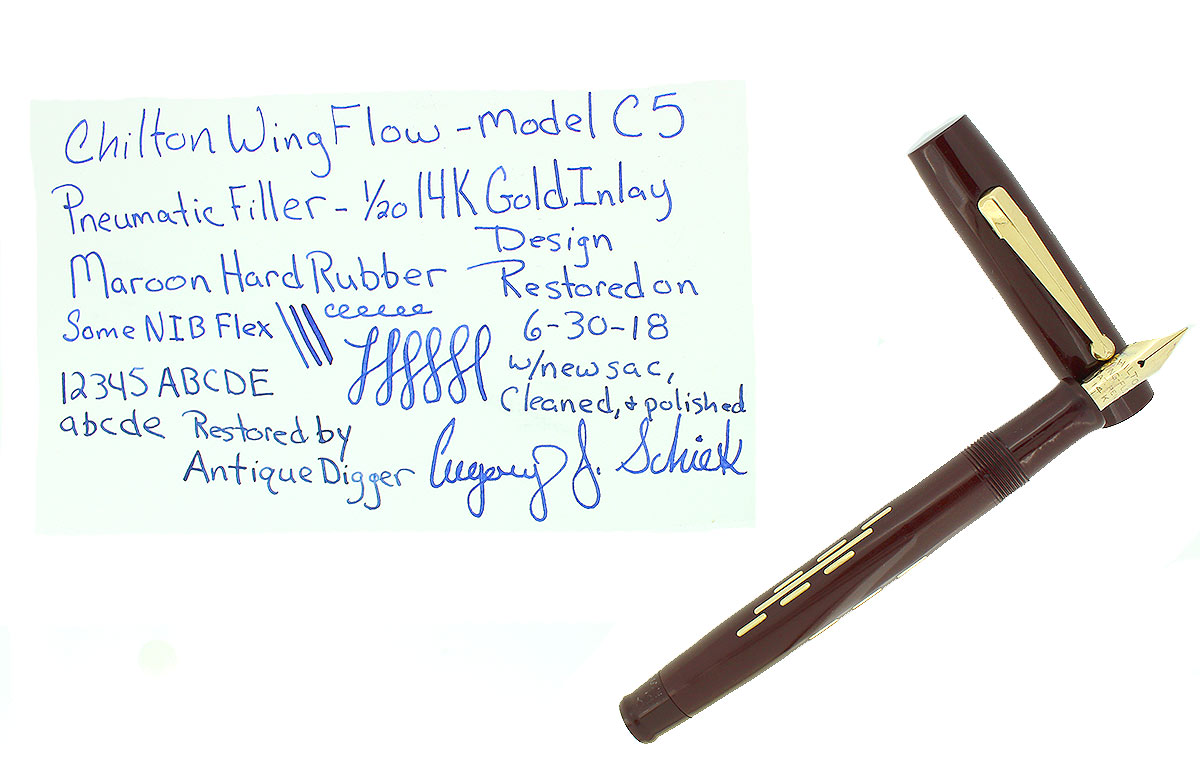 Chilton Wing Flow - Model C5
Pneumatic Filler - 1/20 14K Gold Inlay
Design
Maroon Hard Rubber
Restored on
Some NIB Flex
6-30-18
w/new sac,
12345 ABCDE
Cleaned, & polished
abcde Restored by
Antique Digger
J. Schiek